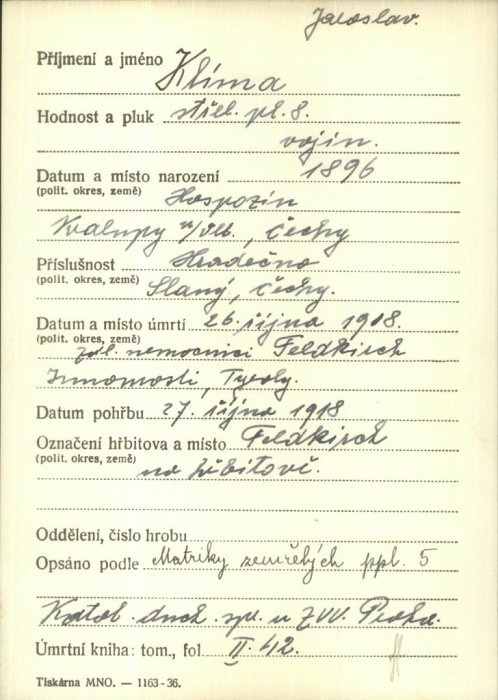 Jaroslav.
Příjmení a jméno Klíma
Hodnost a pluk střel. pl. 8.
vojín.
Datum a místo narození 1896
(polit. okres, země) Hospozín
Kralupy n/Vlt., Čechy
Příslušnost Hradečno
(polit. okres, země) Slaný, Čechy.
Datum a místo úmrtí 26. října 1918.
(polit. okres, země) zál. nemocnici Feldkirch
Innomosti, Tyroly.
Datum pohřbu 27. října 1918
Označení hřbitova a místo Feldkirch
(polit. okres, země) na hřbitově.
Oddělení, číslo hrobu
Opsáno podle Matriky zemřelých ppl. 5
Katol. duch. spr. u ZVV. Praha.
Úmrtní kniha: tom., fol. II. 42.
Tiskárna MNO. — 1163-36.